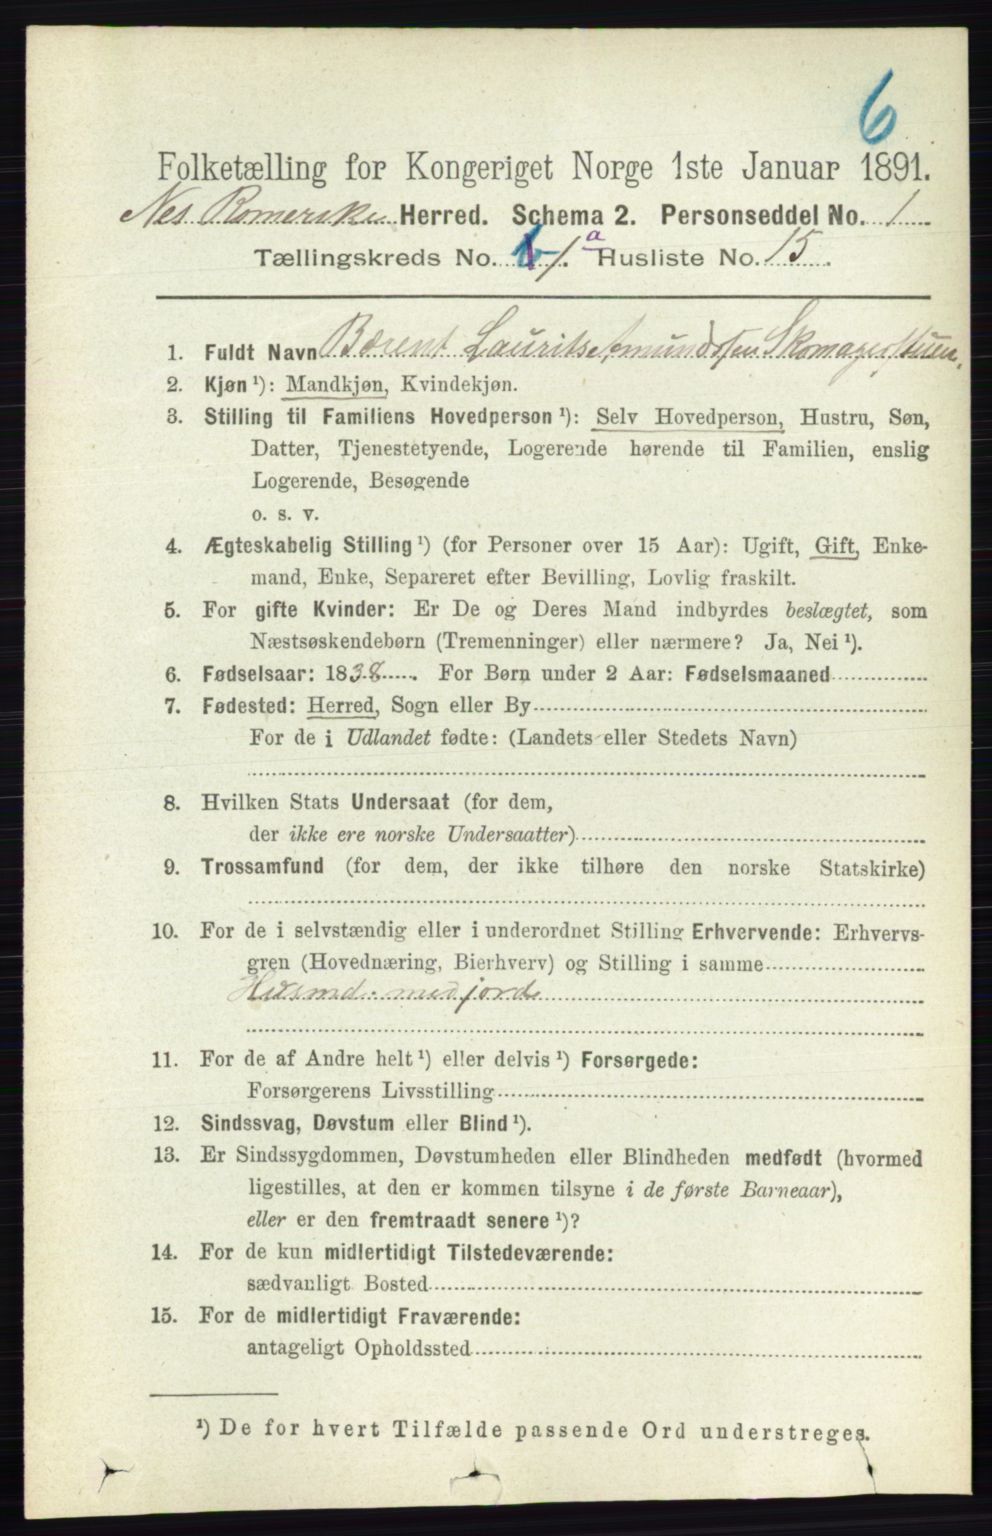 6
Folketælling for Kongeriget Norge 1ste Januar 1891.
Nes Romerike Herred. Schema 2. Personseddel No. 1
Tællingskreds No. 1. a Husliste No. 15.
1. Fuldt Navn Bærent Laurits Amundsen Skomagerstuen.
2. Kjøn ¹): Mandkjøn, Kvindekjøn.
3. Stilling til Familiens Hovedperson ¹): Selv Hovedperson, Hustru, Søn,
Datter, Tjenestetyende, Logerende hørende til Familien, enslig
Logerende, Besøgende
o. s. v.
4. Ægteskabelig Stilling ¹) (for Personer over 15 Aar): Ugift, Gift, Enke-
mand, Enke, Separeret efter Bevilling, Lovlig fraskilt.
5. For gifte Kvinder: Er De og Deres Mand indbyrdes beslægtet, som
Næstsøskendebørn (Tremenninger) eller nærmere? Ja, Nei ¹).
6. Fødselsaar: 1838. For Børn under 2 Aar: Fødselsmaaned
7. Fødested: Herred, Sogn eller By
For de i Udlandet fødte: (Landets eller Stedets Navn)
8. Hvilken Stats Undersaat (for dem,
der ikke ere norske Undersaatter)
9. Trossamfund (for dem, der ikke tilhøre den norske Statskirke)
10. For de i selvstændig eller i underordnet Stilling Erhvervende: Erhvervs-
gren (Hovednæring, Bierhverv) og Stilling i samme
Husmd. med jord
11. For de af Andre helt ¹) eller delvis ¹) Forsørgede:
Forsørgerens Livsstilling
12. Sindssvag, Døvstum eller Blind ¹).
13. Er Sindssygdommen, Døvstumheden eller Blindheden medfødt (hvormed
ligestilles, at den er kommen tilsyne i de første Barneaar),
eller er den fremtraadt senere ¹)?
14. For de kun midlertidigt Tilstedeværende:
sædvanligt Bosted
15. For de midlertidigt Fraværende:
antageligt Opholdssted
¹) De for hvert Tilfælde passende Ord understreges.